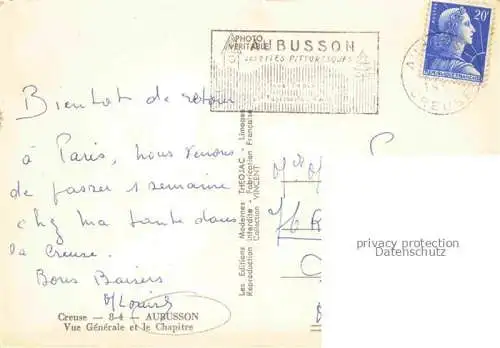 PHOTO
VÉRITABLE
AUBUSSON
SES SITES PITTORESQUES
20F
CREUSE
Bientôt de retour
à Paris, nous venons
de passer 1 semaine
chez ma tante dans
la Creuse.
Bons Baisers
Creuse — 8-4 — AUBUSSON
Vue Générale et le Chapitre
Les Editions Modernes THEOJAC - Limoges
Reproduction Interdite - Fabrication Française
Collection VINCENT
privacy protection
Datenschutz